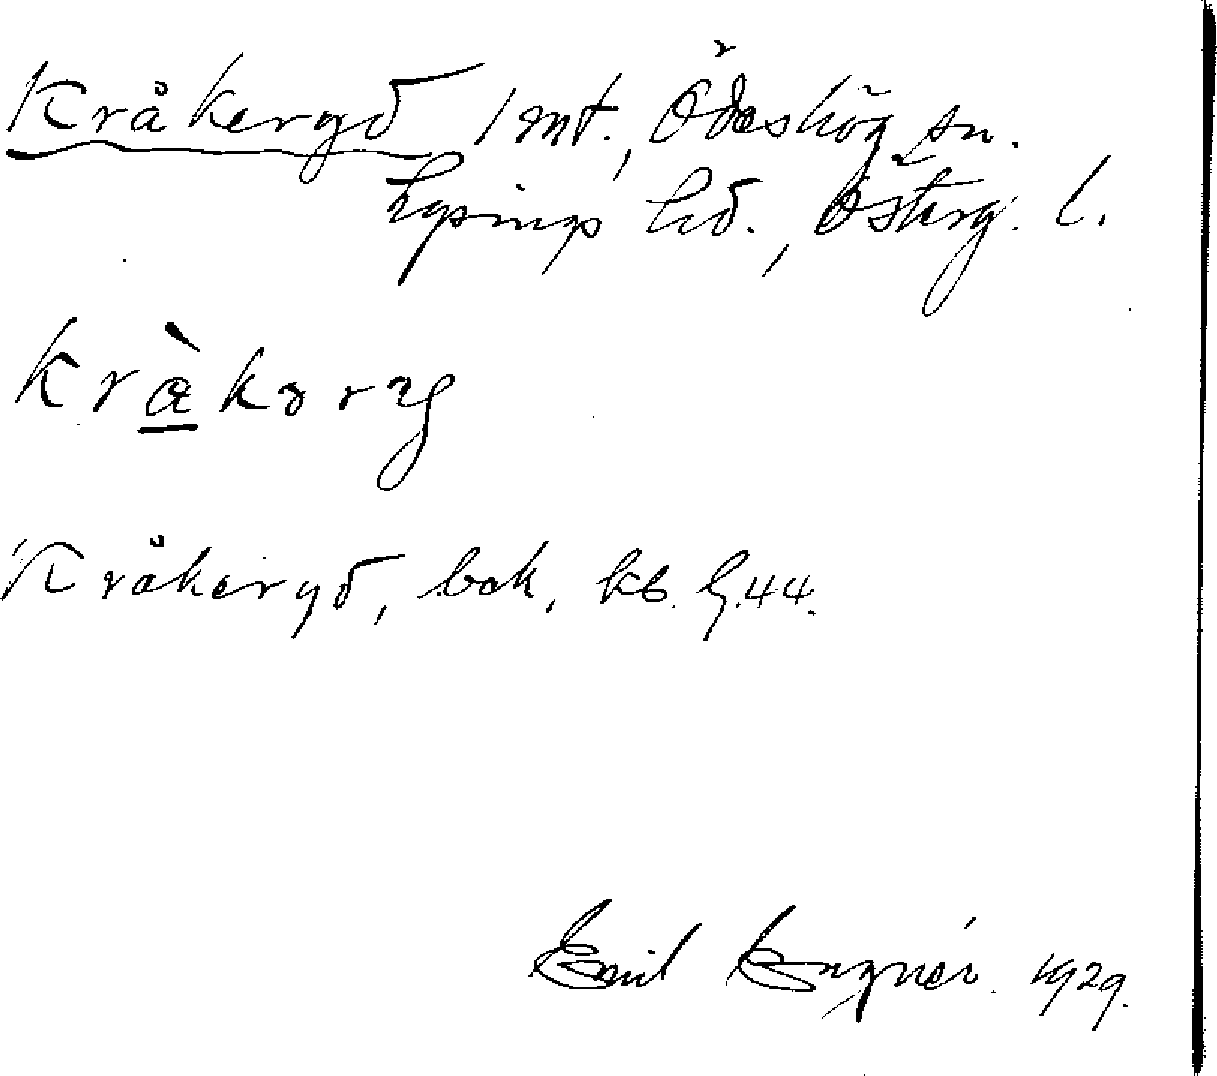 Kråkeryd 1 mt., Ödeshög sn.
Lysings hd., Österg. l.
kràkəry
Kråkeryd, bok. kb. G.44.
Emil Engnér. 1929.